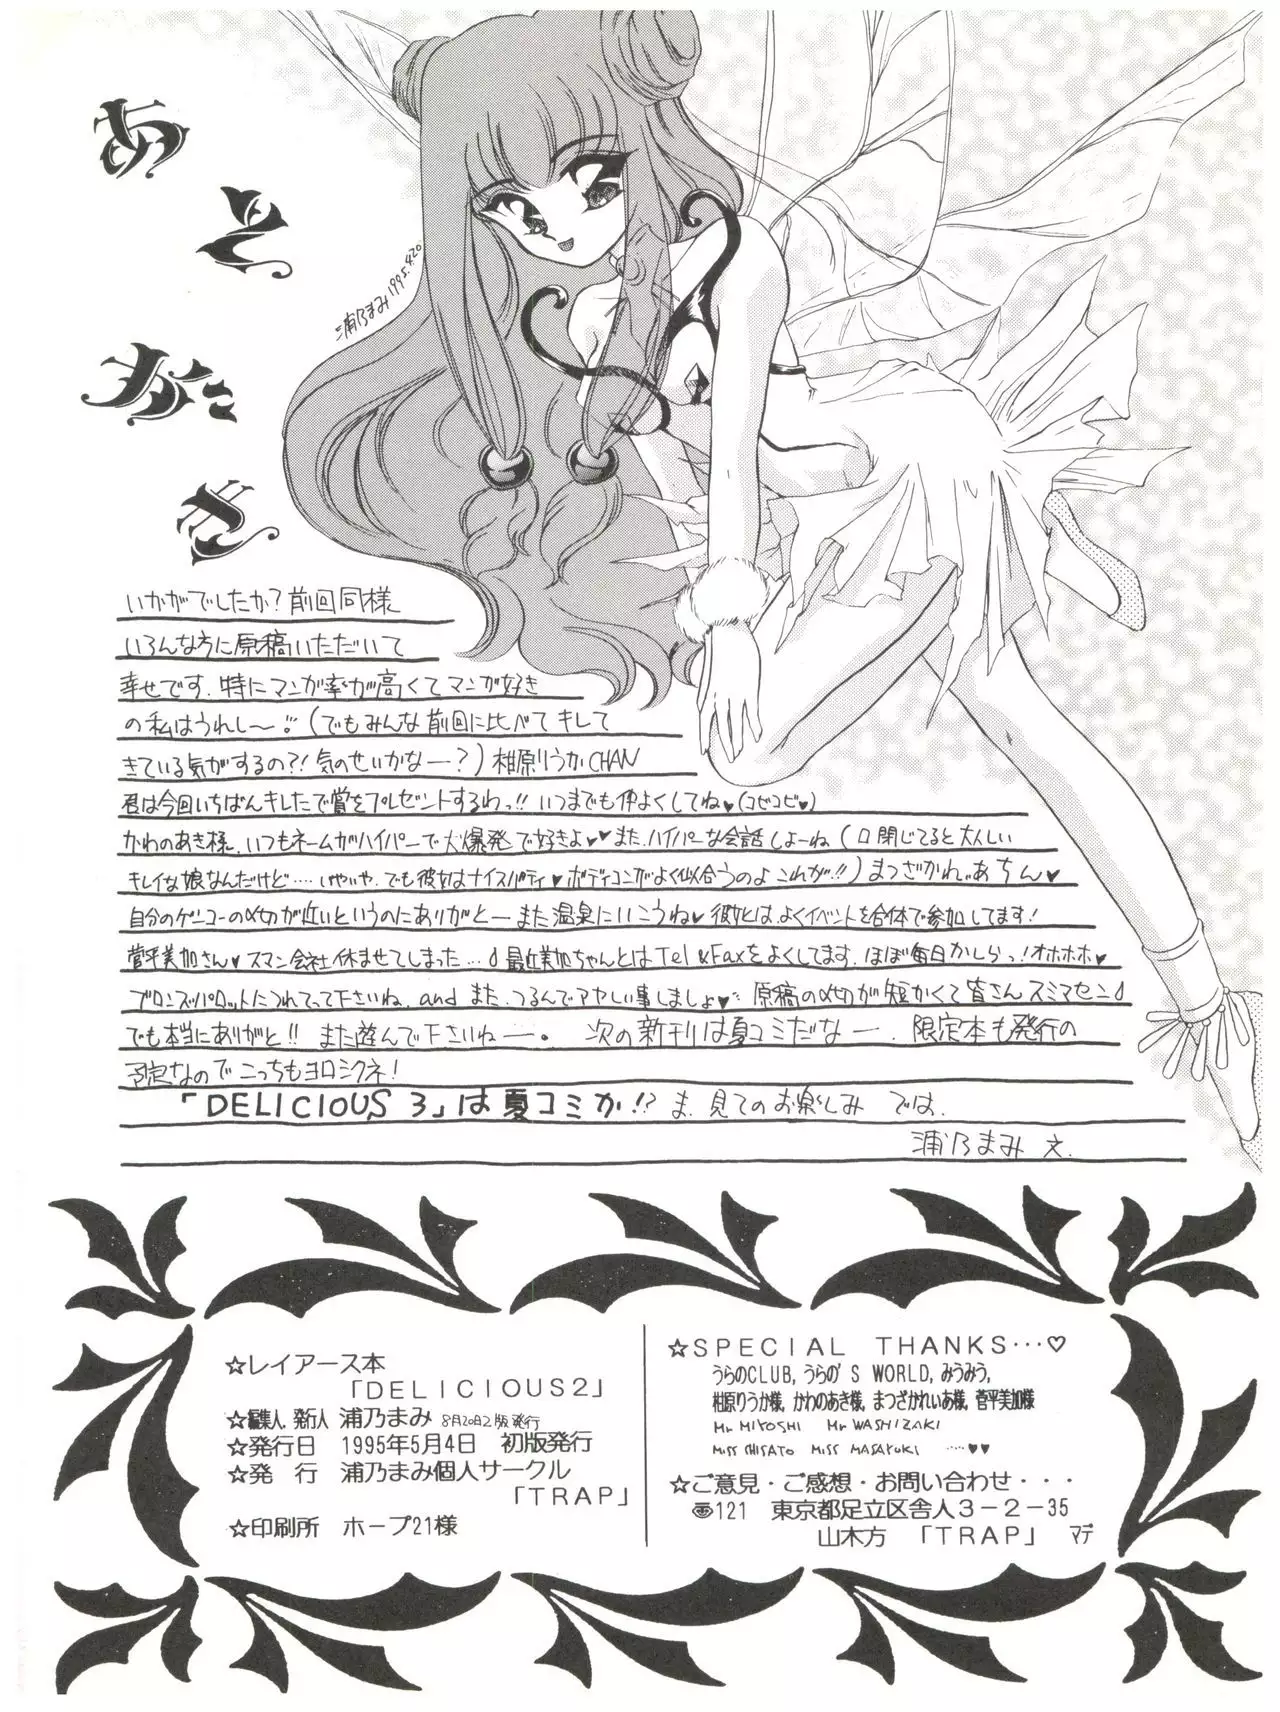 あとがき
浦乃まみ 1995.4.20
いかがでしたか?前回同様
いろんな方に原稿いただいて
幸せです。特にマンガ率が高くてマンガ好き
の私はうれし〜!!(でもみんな前回に比べてキレて
きている気がするの?!気のせいかなー?)柑原りうかCHAN
君は今回いちばんキレたで賞をプレゼントするわっ!!いつまでも仲よくしてね♥(コビコビ♥)
かわのあき様、いつもネームがハイパーで大爆発で好きよ♥♥また、ハイパーな会話しよーね(口閉じてると大人しい
キレイな娘なんだけど…いやいや、でも彼女はナイスバディ♥ボディコンがよく似合うのよこれが!!)まつざかれいあちん♥
自分のゲンコーの〆切が近いというのにありがとーまた温泉にいこうね♥彼女とは、よくイベントを合体で参加してます!
菅平美加さん♥スマン会社休ませてしまった…最近美加ちゃんとはTel&Faxをよくしてます。ほぼ毎日かしらっ!オホホホ♥
ブロンズパロットにつれてって下さいね、and また、つるんでアヤしい事しましょ♥原稿の〆切が短かくて皆さんスミマセン
でも本当にありがと!!また遊んで下さいねー。次の新刊は夏コミだなー 限定本も発行の
予定なのでこっちもヨロシクネ!
「DELICIOUS 3」は夏コミか!?ま、見てのお楽しみ では、
浦乃まみ
☆レイアース本
「DELICIOUS2」
☆編集人、発行人 浦乃まみ 8月20日2版発行
☆発行日 1995年5月4日 初版発行
☆発 行 浦乃まみ個人サークル
「TRAP」
☆印刷所 ホープ21様
☆SPECIAL THANKS…♡
うらのCLUB, うらの'S WORLD, みうみう,
柑原りうか様, かわのあき様, まつざかれいあ様, 菅平美加様
Mr MIYOSHI Mr WASHIZAKI
MISS CHISATO MISS MASAYUKI ……♥♥
☆ご意見・ご感想・お問い合わせ・・・
121 東京都足立区舎人3-2-35
山木方 「TRAP」 マデ